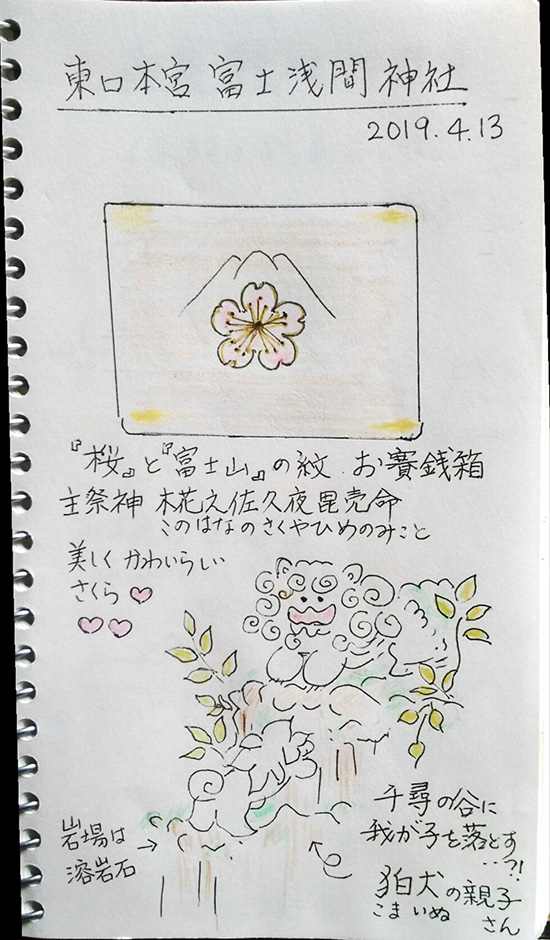 東口本宮 冨士浅間神社
2019.4.13
『桜』と『富士山』の紋 お賽銭箱
主祭神 木花之佐久夜毘売命
このはなのさくやひめのみこと
美しくかわいらしい
さくら♡
♡♡
岩場は→
溶岩石
千尋の谷に
我が子を落とす
…っ?!
狛犬の親子
こまいぬ さん